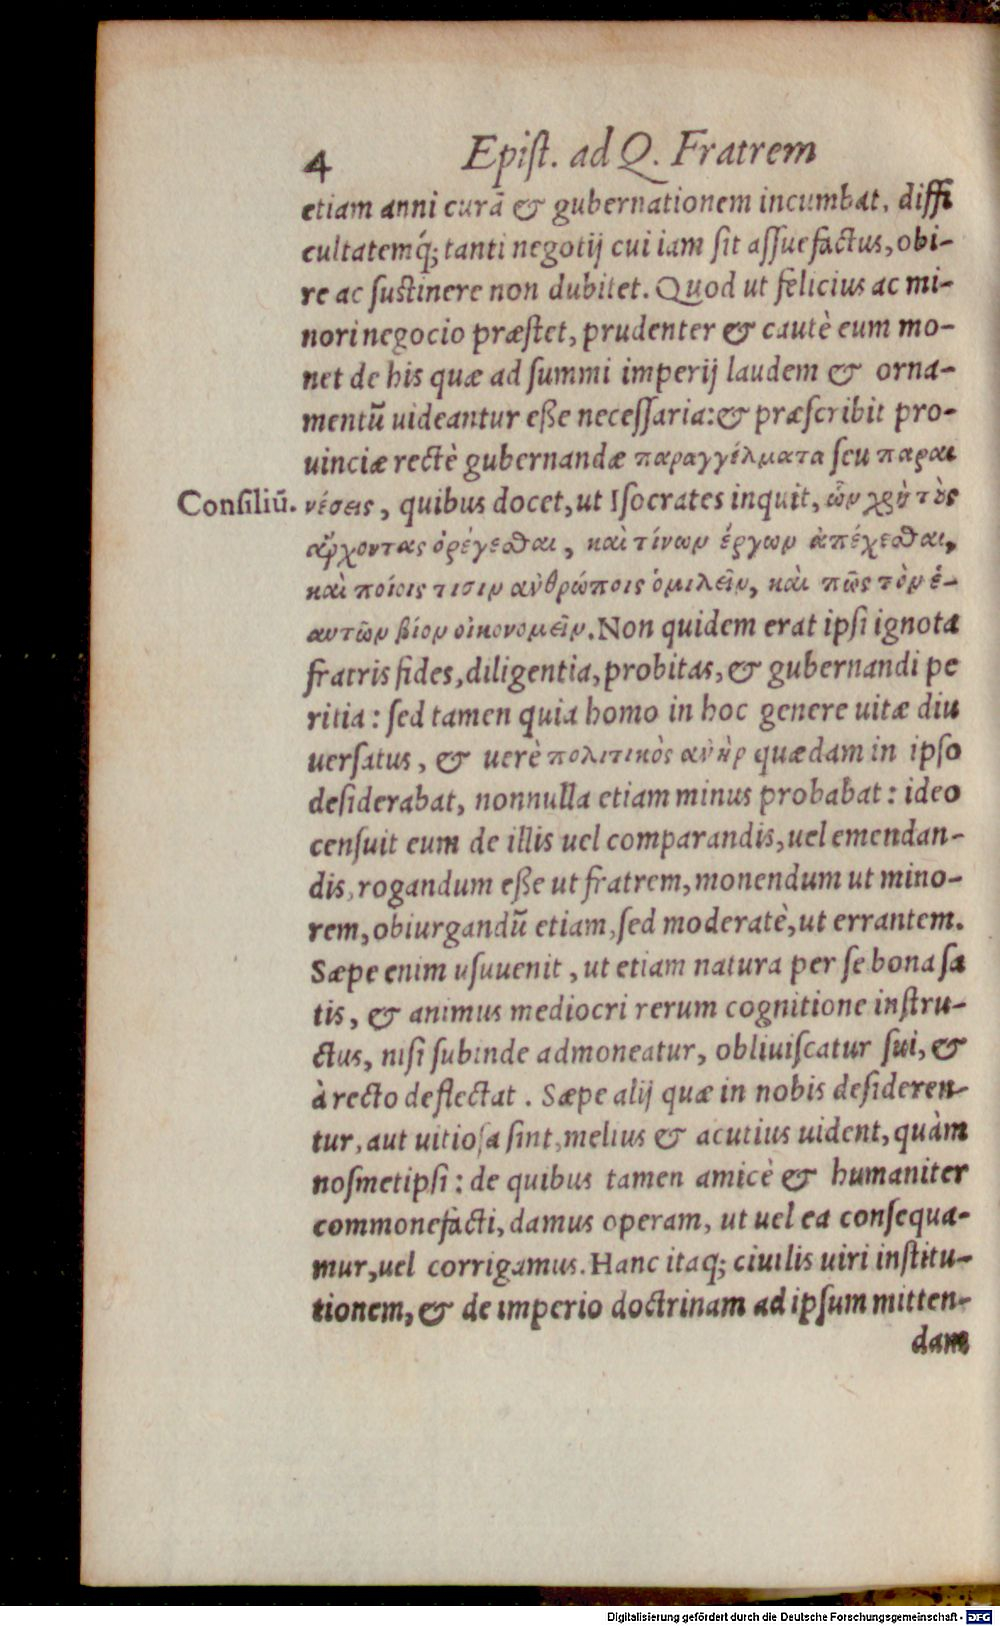 4 Epiſt. ad Q. Fratrem
etiam anni curã & gubernationem incumbat, diffi
cultatemq́; tanti negotij cui iam ſit aſſuefactus, obi-
re ac ſuſtinere non dubitet. Quod ut felicius ac mi-
nori negocio præſtet, prudenter & cautè eum mo-
net de his quæ ad ſummi imperij laudem & orna-
mentũ uideantur eße neceſſaria: & præſcribit pro-
uinciæ rectè gubernandæ παραγγέλματα ſeu παραι
Conſiliũ. νέσεις, quibus docet, ut Iſocrates inquit, ὧν χρὴ τοὺς
ἄρχοντας ὀρέγεσθαι, καὶ τίνων ἔργων ἀπέχεσθαι,
καὶ ποίοις τισιν ἀνθρώποις ὁμιλεῖν, καὶ πῶς τὸν ἑ-
αυτῶν βίον οἰκονομεῖν. Non quidem erat ipſi ignota
fratris fides, diligentia, probitas, & gubernandi pe
ritia: ſed tamen quia homo in hoc genere uitæ diu
uerſatus, & uerè πολιτικὸς ἀνὴρ quædam in ipſo
deſiderabat, nonnulla etiam minus probabat: ideo
cenſuit eum de illis uel comparandis, uel emendan-
dis, rogandum eße ut fratrem, monendum ut mino-
rem, obiurgandũ etiam, ſed moderatè, ut errantem.
Sæpe enim uſuuenit, ut etiam natura per ſe bona ſa
tis, & animus mediocri rerum cognitione inſtru-
ctus, niſi ſubinde admoneatur, obliuiſcatur ſui, &
à recto deflectat. Sæpe alij quæ in nobis deſideren-
tur, aut uitioſa ſint, melius & acutius uident, quàm
noſmetipſi: de quibus tamen amicè & humaniter
commonefacti, damus operam, ut uel ea conſequa-
mur, uel corrigamus. Hanc itaq; ciuilis uiri inſtitu-
tionem, & de imperio doctrinam ad ipſum mitten-
dam
Digitalisierung gefördert durch die Deutsche Forschungsgemeinschaft - DFG